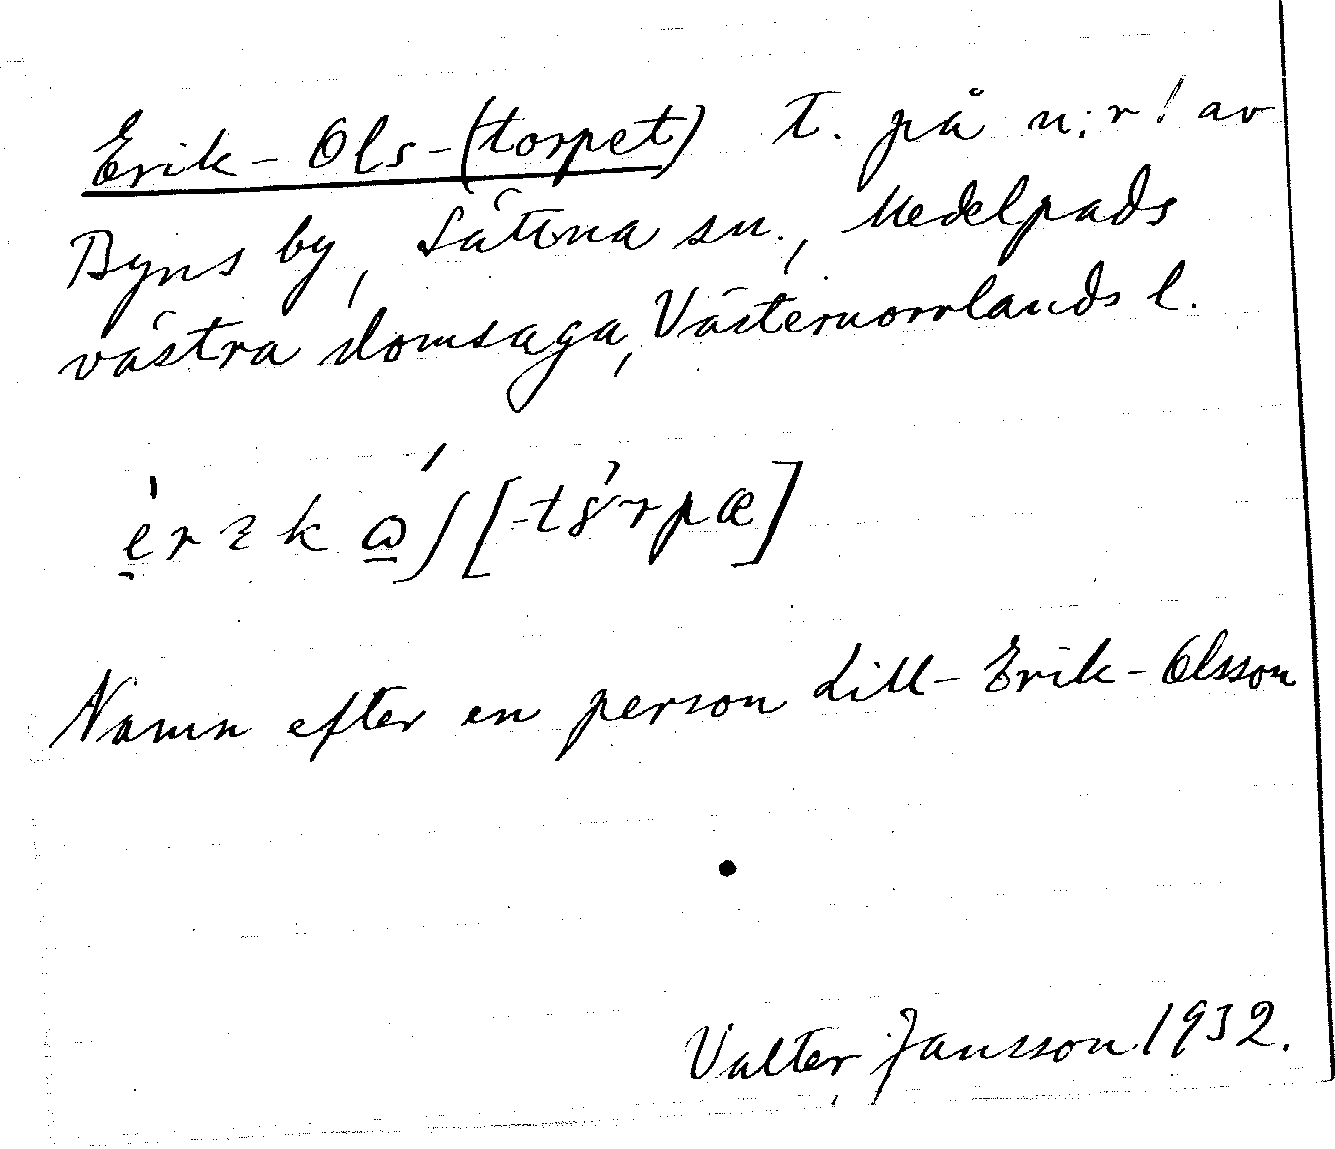 Erik-Ols-(torpet) T. på n:r 1 av
Byns by, Sättna sn., Medelpads
västra domsaga, Västernorrlands l.
[-tɤ́rpæ]
Namn efter en person Lill-Erik-Olsson
Valter Jansson 1932.